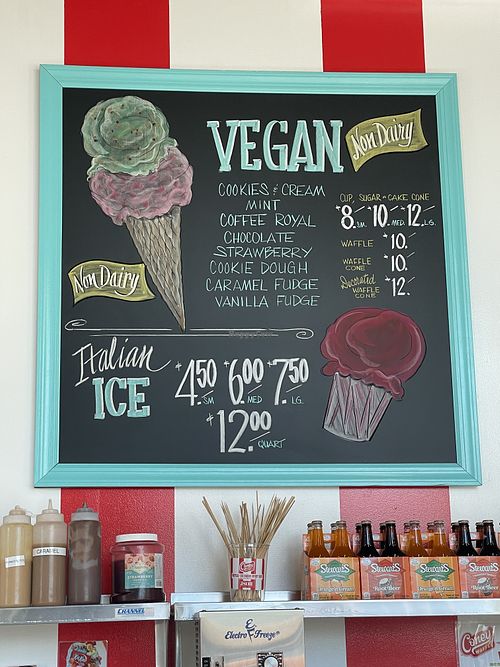 VEGAN
Non Dairy
COOKIES & CREAM
MINT
COFFEE ROYAL
CHOCOLATE
STRAWBERRY
COOKIE DOUGH
CARAMEL FUDGE
VANILLA FUDGE
CUP, SUGAR or CAKE CONE
$8. SM. $10. MED. $12. LG.
WAFFLE $10.
WAFFLE CONE $10.
Decorated WAFFLE CONE $12.
Non Dairy
Italian ICE
$4.50 SM $6.00 MED $7.50 LG.
$12.00 QUART
CARAMEL
STRAWBERRY
CHANNEL
Electro Freeze
Stewart's
Stewart's
Root Beer
Stewart's
Stewart's
Root Beer
Coney
Waffle